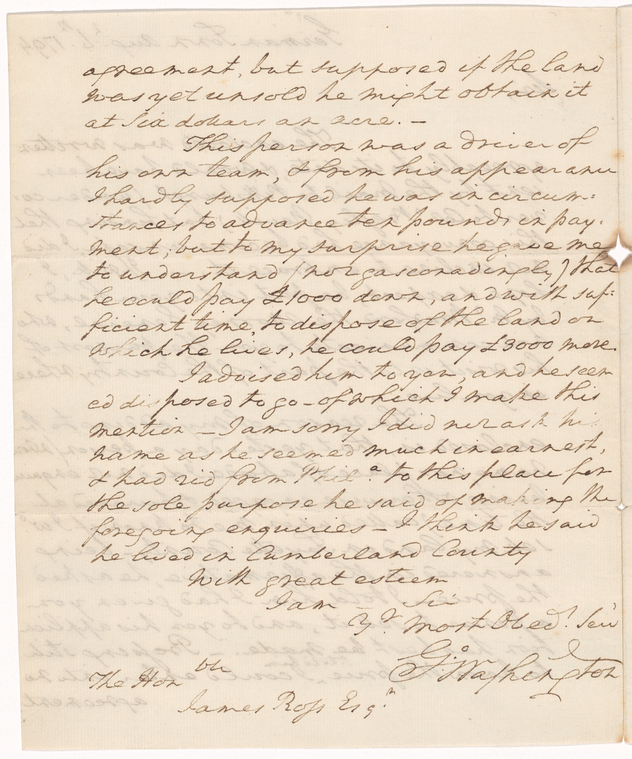 agreement, but supposed if the land
was yet unsold he might obtain it
at Six dollars an acre. –
This person was a driver of
his own team, & from his appearance
I hardly supposed he was in circum:
stances to advance ten pounds in pay:
ment; but to my surprise he gave me
to understand (nor gasconadingly) that
he could pay £1000 down, and with suf:
ficient time, to dispose of the land on
which he lives, he could pay £3000 more.
I advised him to you, and he seem
ed disposed to go – of which I make this
mention – I am sorry I did not ask his
name as he seemed much in earnest,
& had rid from Phila to this place for
the sole purpose he said of making the
foregoing enquiries – I think he said
he lived in Cumberland County
With great esteem
I am – Sir
Yr. Most Obedt. Serv
Go: Washington
The Honble
James Ross Esqr.